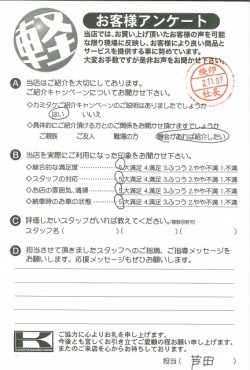 軽
お客様アンケート
当店では、お買い上げ頂いたお客様の声を可能な
限り現場に反映し、お客様により良い商品と
サービスを提供する事に努めています。
大変お手数ですが是非お声をお聞かせ下さい。
検印
2.11.07
社長
A 当店はご紹介を大切にしております。
ご紹介キャンペーンについてお聞かせ下さい。
・カミタケご紹介キャンペーンのご説明はありましたでしょうか
はい いいえ
・具体的にご紹介頂ける方とのご関係をお聞かせ頂けますでしょうか
ご親族 ご友人 職場の方 機会があれば紹介したい
B 当店を実際にご利用になられた印象をお聞かせ下さい。
・総合的な満足度 5.大満足 4.満足 3.ふつう 2.やや不満 1.不満
・スタッフの対応 5.大満足 4.満足 3.ふつう 2.やや不満 1.不満
・お店の雰囲気、清掃 5.大満足 4.満足 3.ふつう 2.やや不満 1.不満
・納車時のお車の状態 5.大満足 4.満足 3.ふつう 2.やや不満 1.不満
C 評価したいスタッフがいれば教えてください。(複数回答可)
スタッフ名( )( )( )
D 担当させて頂きましたスタッフへのご指摘、ご指導メッセージを
お願いします。応援メッセージもぜひお願いします。
K
ご協力に心よりお礼を申し上げます。
今後とも宜しくお引き立てご愛顧の程お願い申し上げます。
またのご来店を心からお待ちしております。
担当( 芦田 )